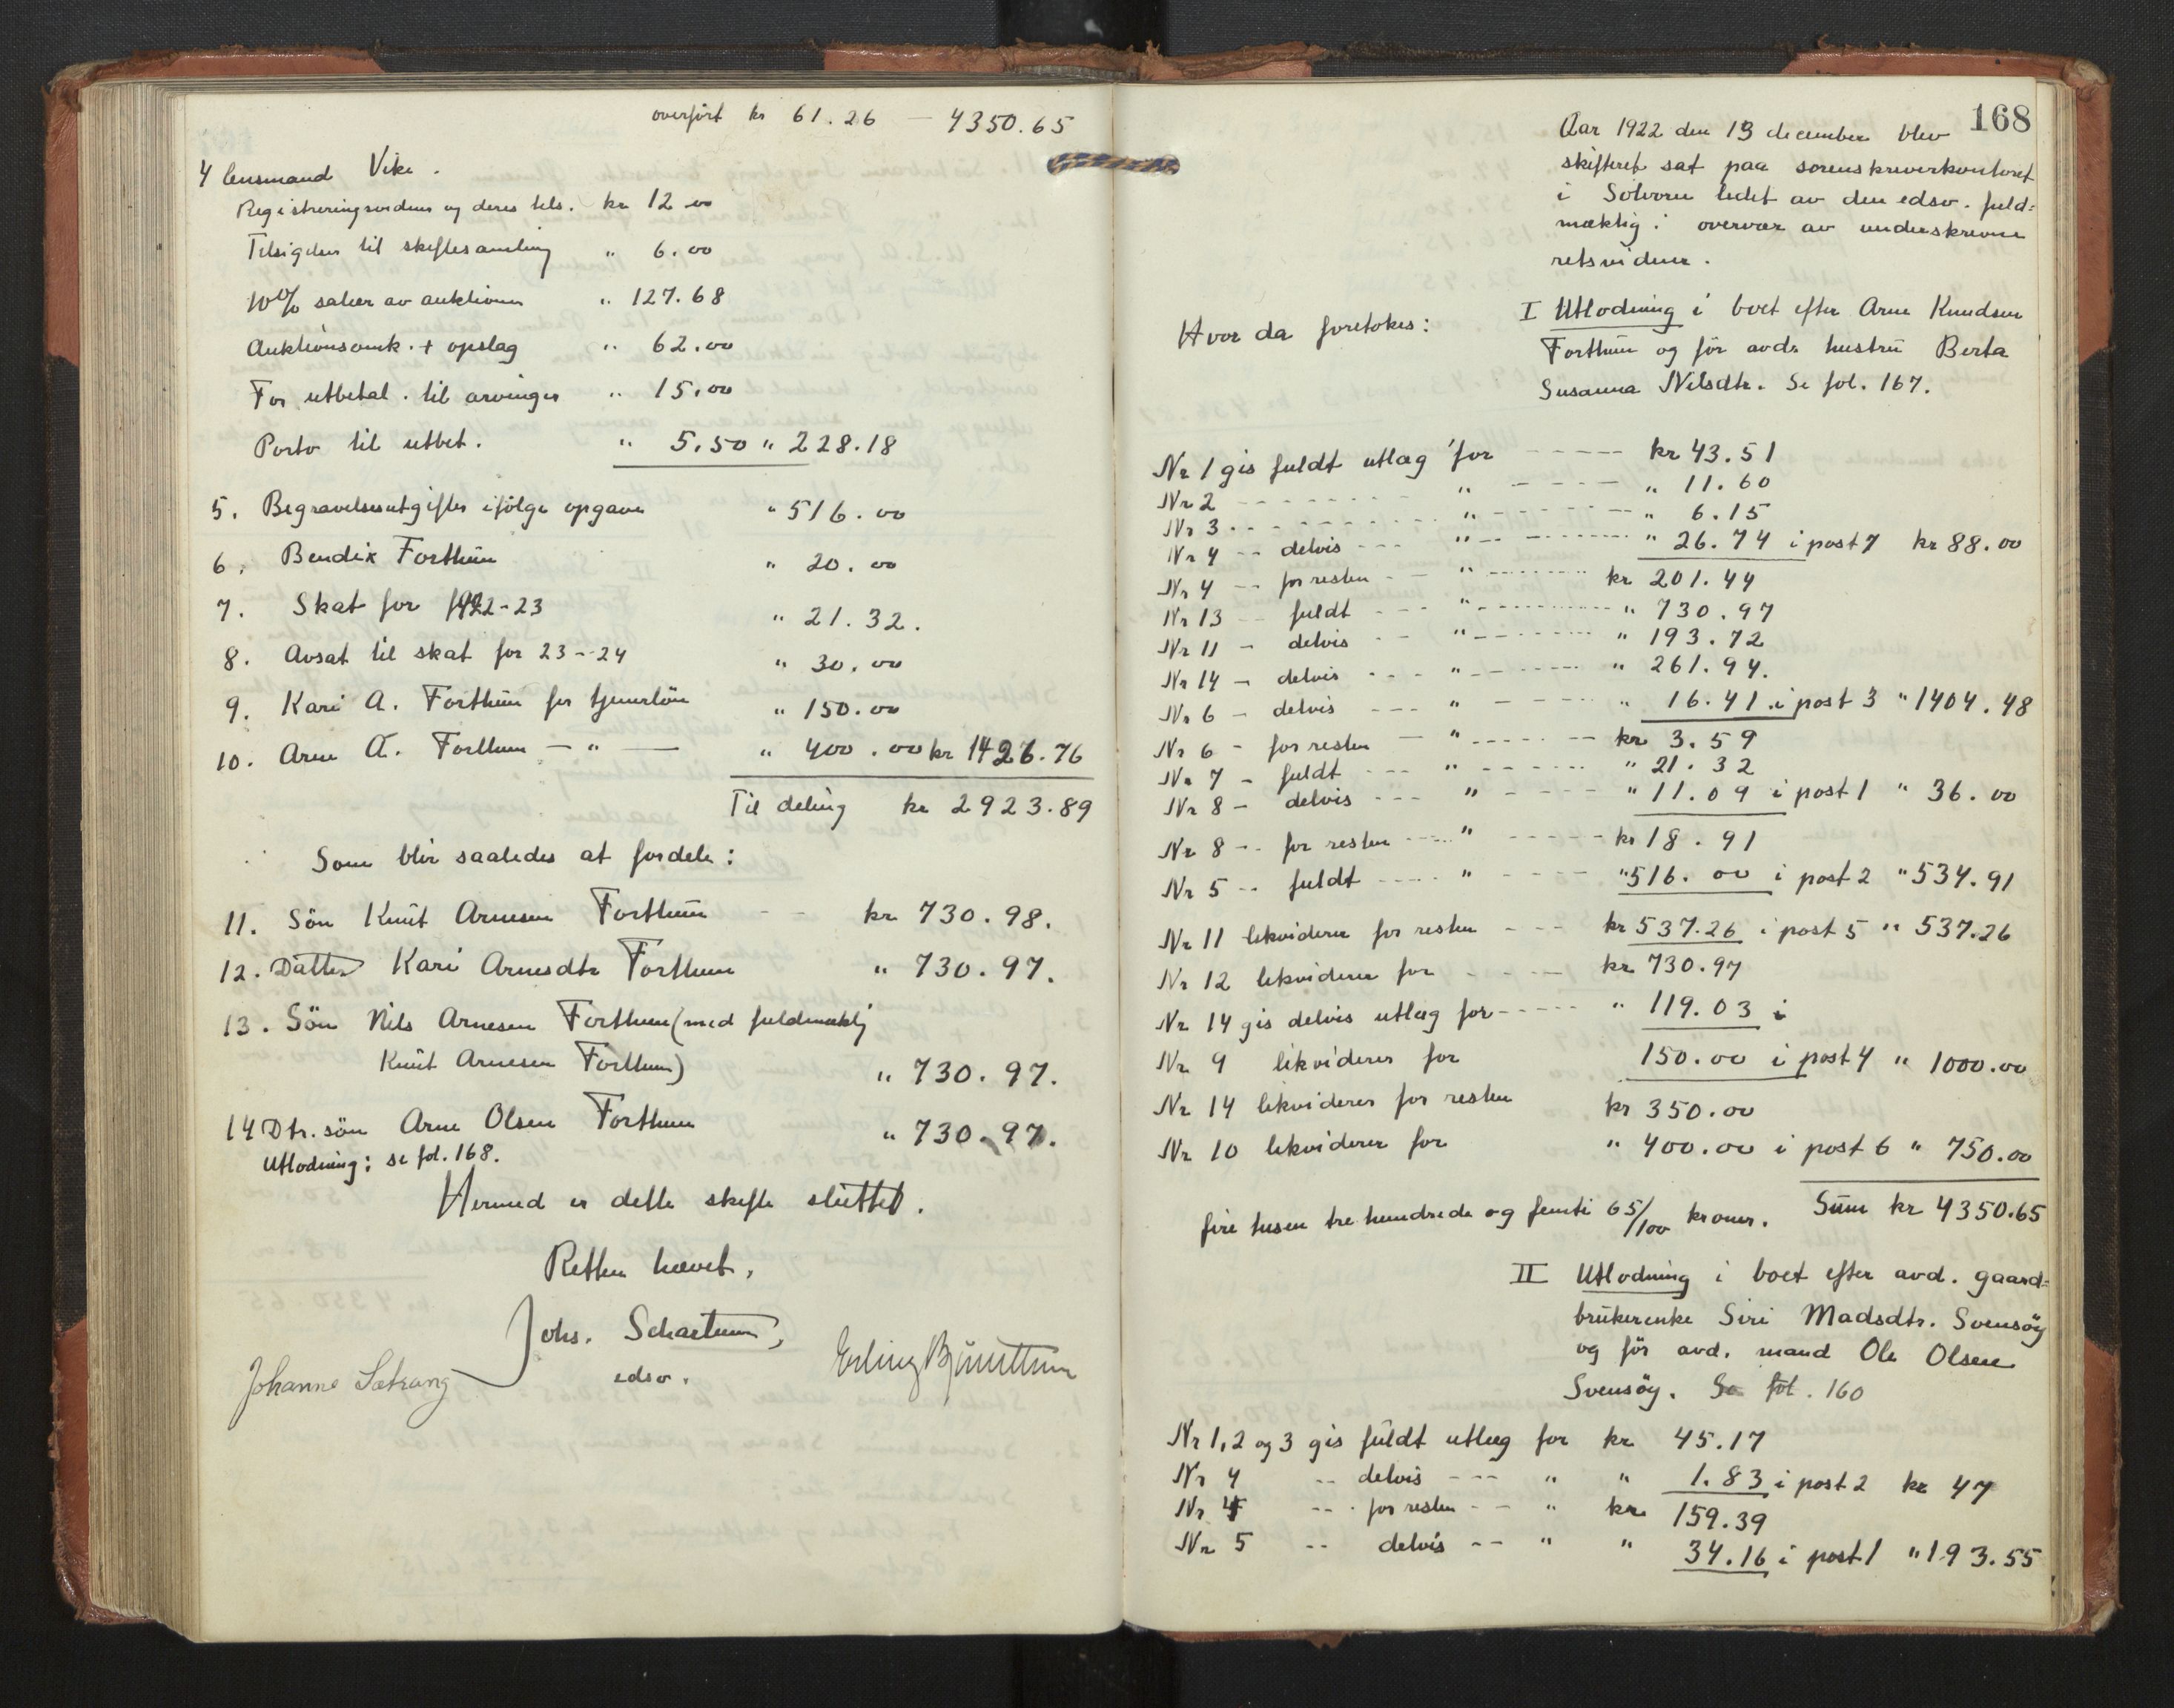 overført kr 61.26 — 4350.65
4 lensmand Vike.
Registreringsvidner og deres tils. kr 12.00
Tilsigelser til skiftesamling " 6.00
10% salær av auktionen " 127.68
Auktionsomk. + opslag " 62.00
For utbetal. til arvinger " 15.00
Porto til utbet. " 5.50 " 228.18
5. Begravelsesutgifter ifølge opgave " 516.00
6. Bendix Forthun " 20.00
7. Skat for 1922-23 " 21.32.
8. Avsat til skat for 23-24 " 30.00
9. Kari A. Forthun for tjenerløn " 150.00
10. Arne A. Forthun — " — " 400.00 kr 1426.76
Til deling kr 2923.89
Som blir saaledes at fordele:
11. Søn Knut Arnesen Forthun - - kr 730.98.
12. Datter Kari Arnesdtr Forthun " 730.97.
13. Søn Nils Arnesen Forthun (med fuldmæktig
Knut Arnesen Forthun) " 730.97.
14 Dtr. søn Arne Olsen Forthun " 730.97.
Utlodning: se fol. 168.
Hermed er dette skifte sluttet.
Retten hævet.
Johs. Schartum,
edsv.
Johanne Sætrang
Erling Bjünnthun
168
Aar 1922 den 13 december blev
skifteret sat paa sorenskriverkontoret
i Solvorn ledet av den edsv. fuld=
mæktig i overvær av underskrevne
retsvidner.
Hvor da foretokes:
I Utlodning i boet efter Arne Knudsen
Forthun og før avdr. hustru Berta
Susanna Nilsdtr. Se fol. 167.
Nr 1 gis fuldt utlæg for - - - - kr 43.51
Nr 2 - - - - " - - - - " 11.60
Nr 3 - - - - " - - - - " 6.15
Nr 4 - - delvis - - - " - - - - " 26.74 i post 7 kr 88.00
Nr 4 - - for resten - - " - - - - kr 201.44
Nr 13 - - fuldt - - - " - - - - " 730.97
Nr 11 - delvis - - " - - - - " 193.72
Nr 14 - delvis - - - " - - - - " 261.94.
Nr 6 - delvis - - - " - - - - " 16.41 i post 3 " 1404.48
Nr 6 - for resten - " - - - - kr 3.59
Nr 7 - fuldt - - - " - - - - " 21.32
Nr 8 - delvis - - - " - - - - " 11.09 i post 1 " 36.00
Nr 8 - - for resten - - - " - - - - kr 18.91
Nr 5 - - fuldt - - - " - - - - " 516.00 i post 2 " 534.91
Nr 11 likviderer for resten - - - kr 537.26 i post 5 " 537.26
Nr 12 likviderer for - - - - kr 730.97
Nr 14 gis delvis utlæg for - - - - " 119.03 i
Nr 9 likviderer for 150.00 i post 4 " 1000.00
Nr 14 likviderer for resten kr 350.00
Nr 10 likviderer for " 400.00 i post 6 " 750.00
fire tusen tre hundrede og femti 65/100 kroner. Sum kr 4350.65
II Utlodning i boet efter avd. gaard=
brukerenke Siri Madsdtr. Svensøy
og før avd. mand Ole Olsen
Svensøy. Se fol. 160
Nr 1, 2 og 3 gis fuldt utlæg for kr 45.17
Nr 4 - - delvis - - - " " 1.83 i post 2 kr 47
Nr 4 - - for resten - - " kr 159.39
Nr 5 - - delvis - - " " 34.16 i post 1 " 193.55